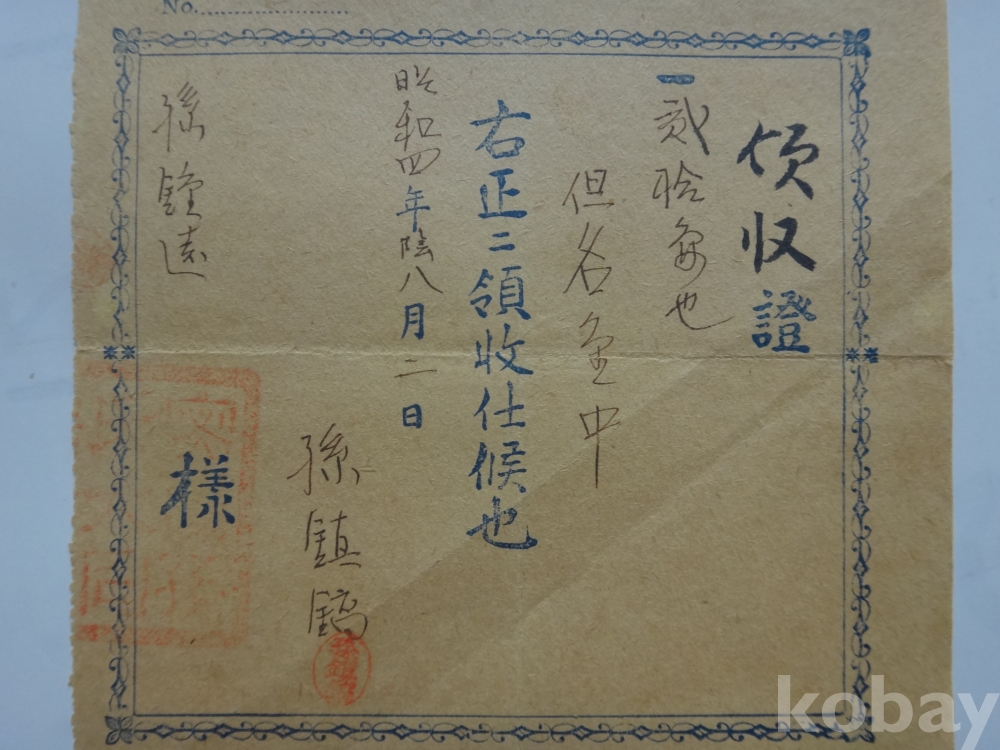 No.
領収證
一貳拾
也
但名金中
右正ニ領收仕候也
昭和四年陰八月二日
孫鎮鎬
孫鍾遠
樣
kobay